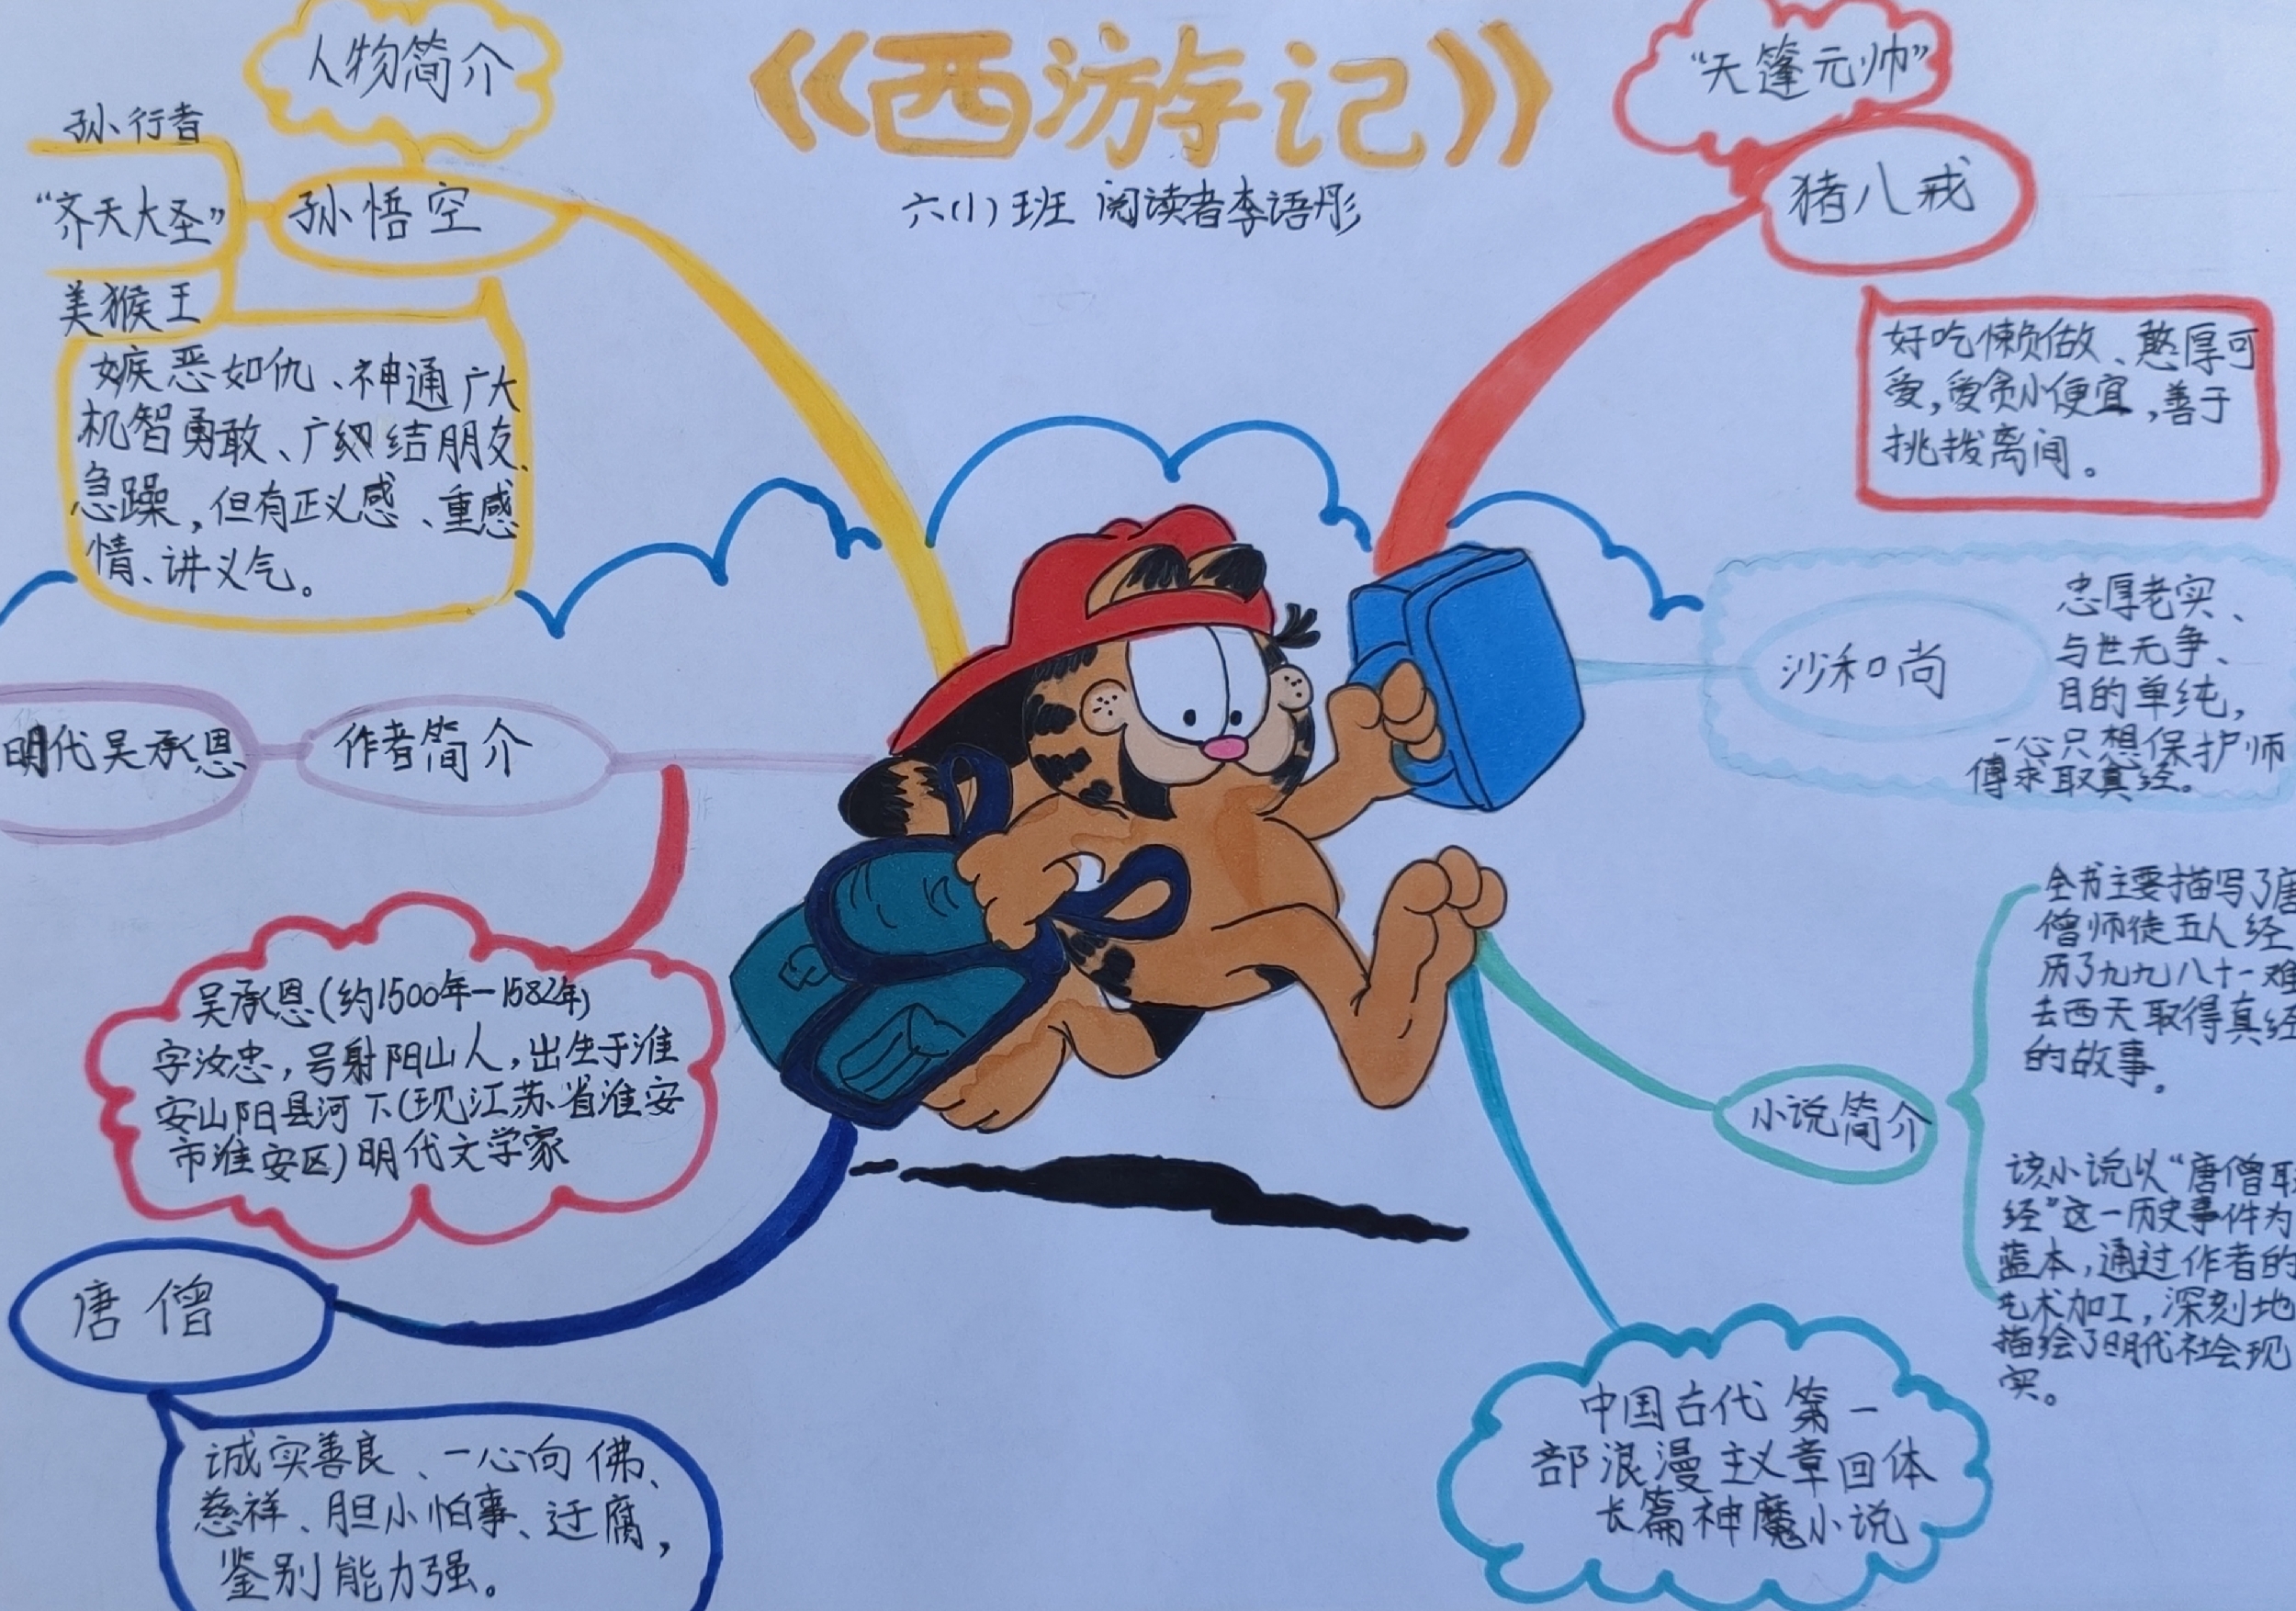 《西游记》
六(1)班 阅读者李语彤
人物简介
孙行者
"齐天大圣"
美猴王
孙悟空
嫉恶如仇、神通广大
机智勇敢、广结朋友、
急躁,但有正义感、重感
情、讲义气。
"天篷元帅"
猪八戒
好吃懒做、憨厚可
爱,爱贪小便宜,善于
挑拨离间。
沙和尚
忠厚老实、
与世无争、
目的单纯,
一心只想保护师
傅求取真经。
作者简介
明代吴承恩
吴承恩(约1500年—1582年)
字汝忠,号射阳山人,出生于淮
安山阳县河下(现江苏省淮安
市淮安区)明代文学家
唐僧
诚实善良、一心向佛、
慈祥、胆小怕事、迂腐,
鉴别能力强。
小说简介
全书主要描写了唐
僧师徒五人经
历了九九八十一难
去西天取得真经
的故事。
该小说以"唐僧取
经"这一历史事件为
蓝本,通过作者的
艺术加工,深刻地
描绘了明代社会现
实。
中国古代第一
部浪漫主义章回体
长篇神魔小说